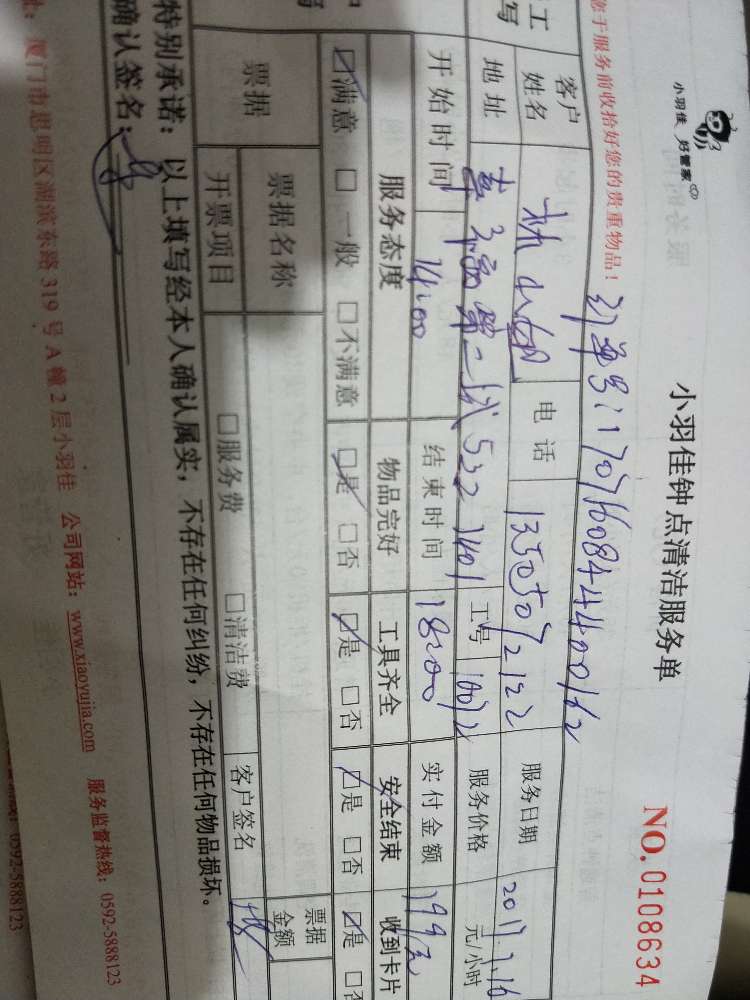 小羽佳 好管家
小羽佳钟点清洁服务单
NO.0108634
您于服务前收拾好您的贵重物品！
订单号:17071608444400162
客户姓名 电话 服务日期 2017.7.16
地址 第二城532 1401 工号 10012 服务价格 元/小时
开始时间 14:00 结束时间 18:00 实付金额 199元
服务态度 物品完好 工具齐全 安全结束 收到卡片
☑满意 □一般 □不满意 ☑是 □否 ☑是 □否 ☑是 □否 ☑是 □否
票据 票据名称 票据金额
开票项目 □服务费 □清洁费 客户签名
特别承诺：以上填写经本人确认属实，不存在任何纠纷，不存在任何物品损坏。
确认签名：
厦门市思明区湖滨东路319号A幢2层小羽佳 公司网站：www.xiaoyujia.com 服务监督热线：0592-5888123
0592-5888123